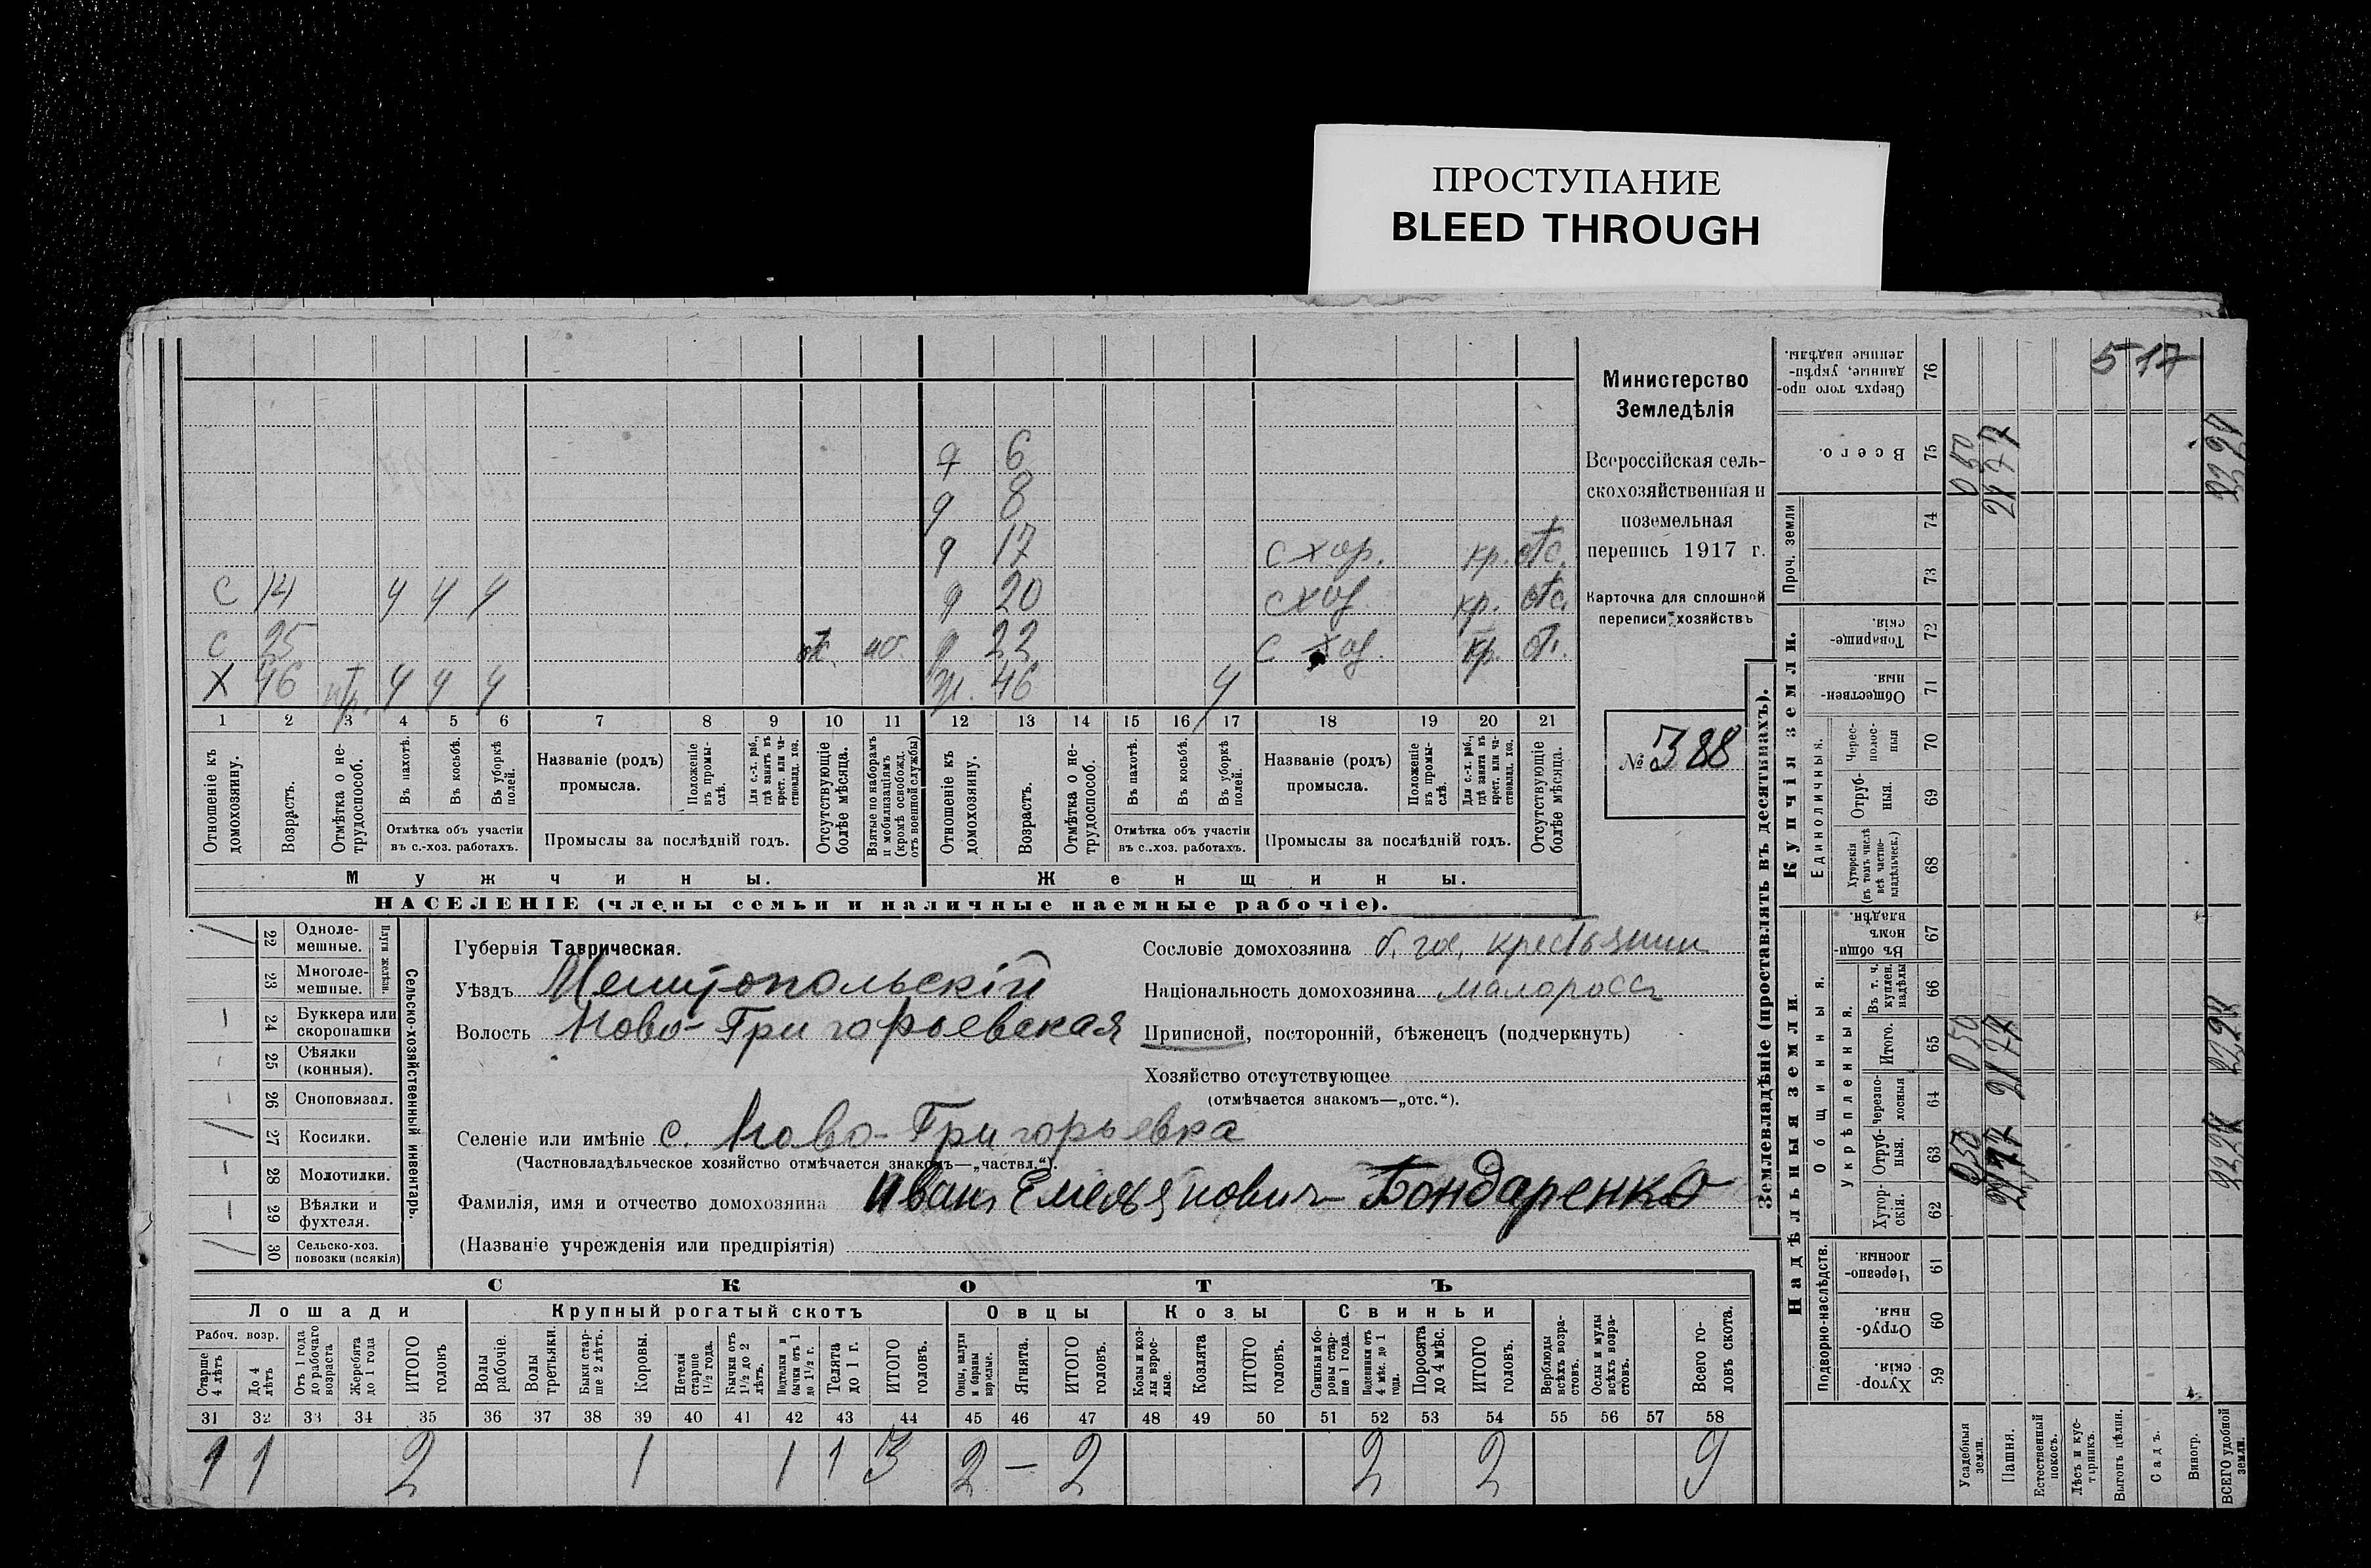 ПРОСТУПАНИЕ
BLEED THROUGH
д 6
д 8
д 17 с хоз. кр. отс.
С 14 ч ч ч д 20 с хоз. кр. отс.
С 25 отс. моб. д 22 с хоз. кр. отс.
Х 46 ч ч ч ж. 46 ч
1 2 3 4 5 6 7 8 9 10 11 12 13 14 15 16 17 18 19 20 21
Отношеніе къ домохозяину.
Возрастъ.
Отмѣтка о не-
трудоспособ.
Въ пахотѣ.
Въ косьбѣ.
Въ уборкѣ
полей.
Отмѣтка объ участіи
въ с.-хоз. работахъ.
Названіе (родъ)
промысла.
Положеніе
въ промы-
слѣ.
Для с.-х. раб.,
гдѣ занятъ въ
крест. или ча-
стновлад. хоз.
Промыслы за послѣдній годъ.
Отсутствующіе
болѣе мѣсяца.
Взятые по наборамъ
и мобилизаціямъ
(кромѣ освобожд.
отъ военной службы)
Отношеніе къ
домохозяину.
Возрастъ.
Отмѣтка о не-
трудоспособ.
Въ пахотѣ.
Въ косьбѣ.
Въ уборкѣ
полей.
Отмѣтка объ участіи
въ с.-хоз. работахъ.
Названіе (родъ)
промысла.
Положеніе
въ промы-
слѣ.
Для с.-х. раб.,
гдѣ занята въ
крест. или ча-
стновлад. хоз.
Промыслы за послѣдній годъ.
Отсутствующіе
болѣе мѣсяца.
Мужчины.
Женщины.
НАСЕЛЕНІЕ (члены семьи и наличные наемные рабочіе).
Министерство
Земледѣлія
Всероссійская сель-
скохозяйственная и
поземельная
перепись 1917 г.
Карточка для сплошной
переписи хозяйствъ
№ 388
22 Одноле-
мешные.
23 Многоле-
мешные.
Плуги желѣзн.
24 Буккера или
скоропашки
25 Сѣялки
(конныя).
26 Сноповязал.
27 Косилки.
28 Молотилки.
29 Вѣялки и
фухтеля.
30 Сельско-хоз.
повозки (всякія)
Сельско-хозяйственный инвентарь.
Губернія Таврическая.
Уѣздъ Мелитопольскій
Волость Ново-Григорьевская
Селеніе или имѣніе с. Ново-Григорьевка
(Частновладѣльческое хозяйство отмѣчается знакомъ—„частвл.“).
Фамилія, имя и отчество домохозяина Иванъ Емельяновичъ Бондаренко
(Названіе учрежденія или предпріятія)
Сословіе домохозяина б. гос. крестьянин
Національность домохозяина малороссъ
Приписной, посторонній, бѣженецъ (подчеркнуть)
Хозяйство отсутствующее
(отмѣчается знакомъ—„отс.“).
СКОТЪ
Лошади
Крупный рогатый скотъ
Овцы
Козы
Свиньи
Рабоч. возр.
Старше
4 лѣтъ
До 4
лѣтъ
Отъ 1 года
до рабочаго
возраста
Жеребята
до 1 года
ИТОГО
головъ
Волы
рабочіе.
Волы
третьяки.
Быки стар-
ше 2 лѣтъ.
Коровы.
Нетели
старше
1½ года.
Бычки отъ
1½ до 2
лѣтъ.
Подтелки и
бычки отъ 1
до 1½ г.
Телята
до 1 г.
ИТОГО
головъ.
Овцы, валухи
и бараны
взрослые.
Ягнята.
ИТОГО
головъ.
Козы и коз-
лы взрос-
лые.
Козлята
ИТОГО
головъ.
Свиньи и бо-
ровы стар-
ше 1 года.
Подсвинки отъ
4 мѣс. до 1
года.
Поросята
до 4 мѣс.
ИТОГО
головъ.
Верблюды
всѣхъ возра-
стовъ.
Ослы и мулы
всѣхъ возра-
стовъ.
Всего го-
ловъ скота.
31 32 33 34 35 36 37 38 39 40 41 42 43 44 45 46 47 48 49 50 51 52 53 54 55 56 57 58
1 1 2 1 1 1 3 2 — 2 2 2 9
Землевладѣніе (проставлять въ десятинахъ).
Надѣльныя земли.
Купчія земли.
Проч. земли
Подворно-наслѣдств.
Общинныя.
Укрѣпленныя.
Единоличныя.
Сверхъ того про-
данные, укрѣп-
ленные надѣлы.
76
5 17
Всего.
75
0 50
21 77
22 27
74
73
Товарище-
скія.
72
Обществен-
ныя.
71
Черес-
полос-
ныя
70
Отруб-
ныя.
69
Хуторскія
(въ томъ числѣ
всѣ частно-
владѣльческ.)
68
Въ общи-
номъ
владѣн.
67
Въ т. ч.
куплен.
надѣлы
66
Итого.
65
0 50
21 77
22 27
Черезпо-
лосныя
64
Отруб-
ныя.
63
0 50
21 77
22 27
Хутор-
скія.
62
Черезпо-
лосныя.
61
Отруб-
ныя.
60
Хутор-
скія.
59
Усадебныя
земли.
Пашня.
Естественный
покосъ.
Лѣсъ и кус-
тарникъ.
Выгонъ цѣлин.
Садъ.
Виногр.
ВСЕГО удобной
земли.